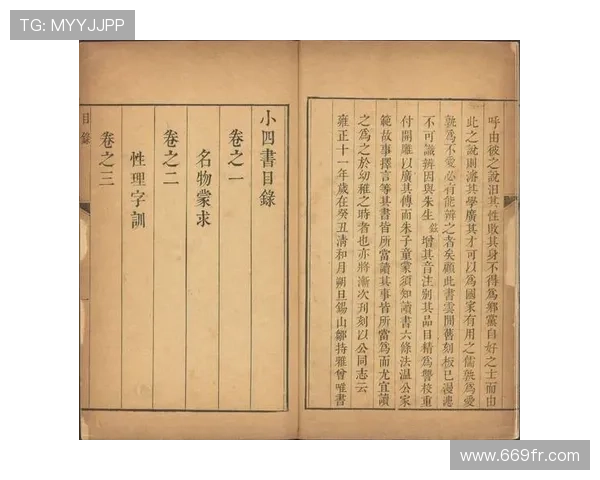 TG: MYYJJPP
呼由彼之說汨其性敗其身不得爲鄉黨自好之士而由
此之說則濬其學廣其才可以爲國家有用之儒孰爲愛
孰爲不愛必有能辨之者矣顧此書雲間舊刻板已漫漶
不可識辨因與朱生增其音注別其品目精爲讐校重
付開雕以廣其傳而朱子童蒙須知讀書六條法溫公家
範故事擇言等其書皆所當讀其事皆所當爲而尤宜讀
之爲之於幼稚之時者也亦將漸次刋刻以公同志云
雍正十一年歲在癸丑清和月朔旦錫山鄒持雅曾唯書
小四書目錄
卷之一
名物蒙求
卷之二
性理字訓
卷之三
目錄
www.669fr.com